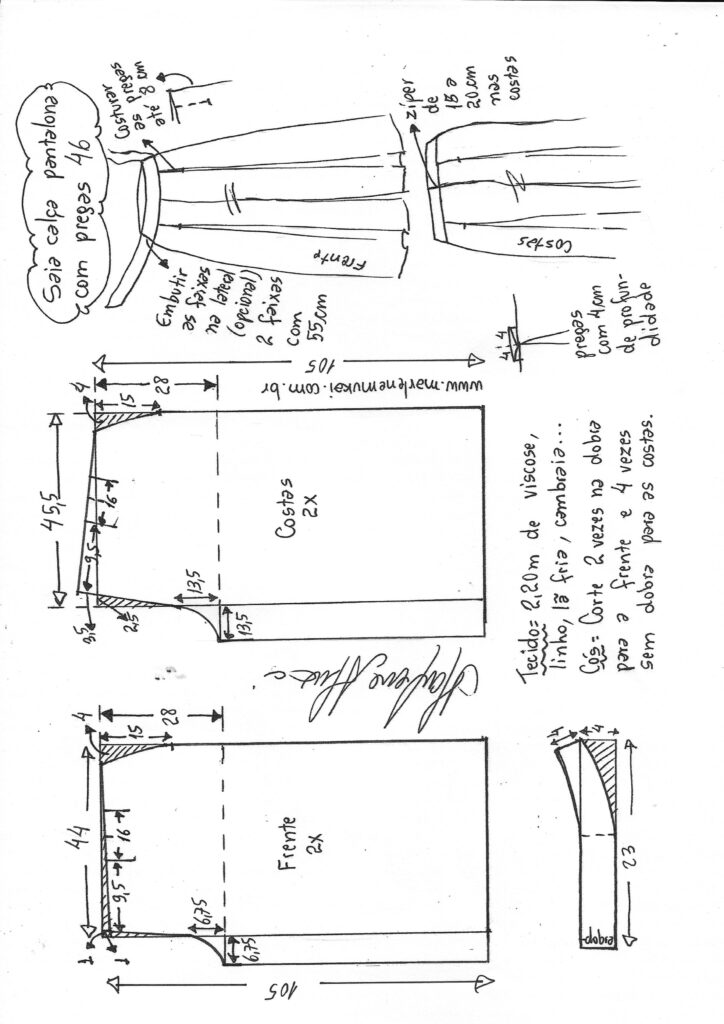 Saia calça pantalona
com pregas 46
Costurar
as pregas
até 8 cm
Embutir
as faixas
na lateral
(opcional)
2 faixas
com
55cm
Frente
zíper
de
15 a
20cm
nas
costas
Costas
4 4
pregas
com 4cm
de profun-
didade
105
28
15
4
45,5
16
9,5
3,5
2,5
13,5
13,5
Costas
2X
www.marlenemukai.com.br
Tecido= 2,20m de viscose,
linho, lã fria, cambraia...
Cós= Corte 2 vezes na dobra
para a frente e 4 vezes
sem dobra para as costas.
44
4
15
28
16
9,5
1
1
6,75
6,75
Frente
2X
105
4
4
23
dobra